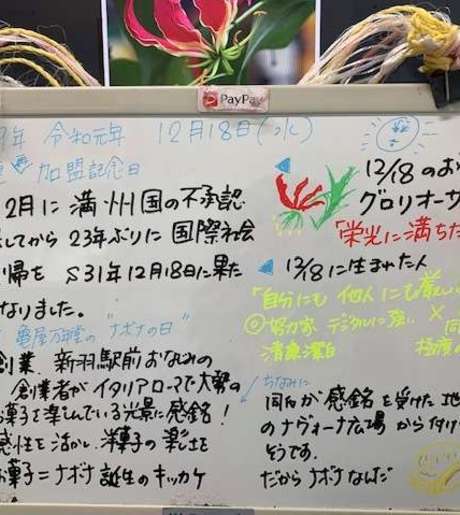 PayPay
9年 令和元年 12月18日(水)
加盟記念日
2月に 満州国の不承認
してから 23年ぶりに 国際社会
帰を S31年12月18日に果た
なりました。
亀屋万年堂の "ナボナの日"
創業、新羽駅前 おなじみの
創業者が イタリア ローマで 大勢の
お菓子を楽しんでいる光景に感銘!
感性を活かし 洋菓子の
お菓子=ナボナ 誕生のキッカケ
12/18のお
グロリオーサ
「栄光に満ちた
12/18に生まれた人
「自分にも 他人にも厳しい
◎努力家 デジタルに強い ×
清廉潔白
極度の
ちなみに
同氏が 感銘を受けた地
のナヴォーナ広場 から付け
そうです。
だからナボナなんだ